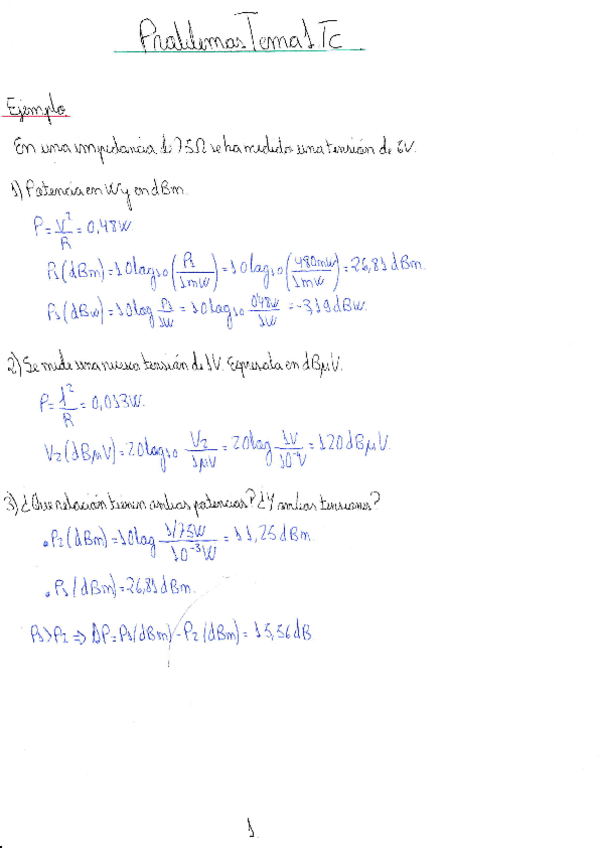 Problemas Tema 1. Tc
Ejemplo.
En una impedancia de 75Ω se ha medido una tensión de 6V.
1) Potencia en W y en dBm.
P = V²/R = 0,48W
P₁(dBm) = 10log₁₀(P₁/1mW) = 10log₁₀(480mW/1mW) = 26,81dBm.
P₁(dBw) = 10log P₁/1W = 10log₁₀ 0,48W/1W = -3,19dBw.
2) Se mide una nueva tensión de 1V. Expresala en dBμV.
P = 1²/R = 0,013W.
V₂(dBμV) = 20log₁₀ V₂/1μV = 20log 1V/10⁻⁶V = 120dBμV.
3) ¿Que relación tienen ambas potencias? ¿Y ambas tensiones?
• P₂(dBm) = 10log 1/75W/10⁻³W = 11,25dBm.
• P₁(dBm) = 26,81dBm.
P₁>P₂ ⇒ ΔP = P₁(dBm) - P₂(dBm) = 15,56dB
1.